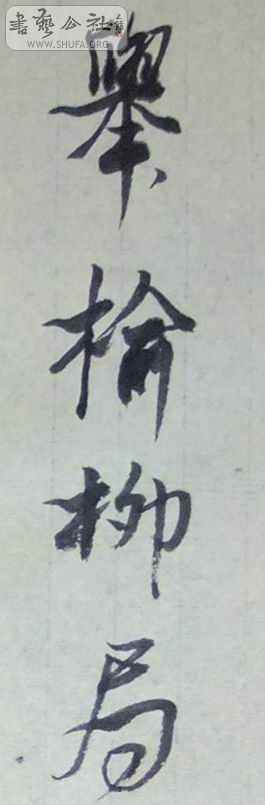 書藝公社
WWW.SHUFA.ORG
舉榆柳局